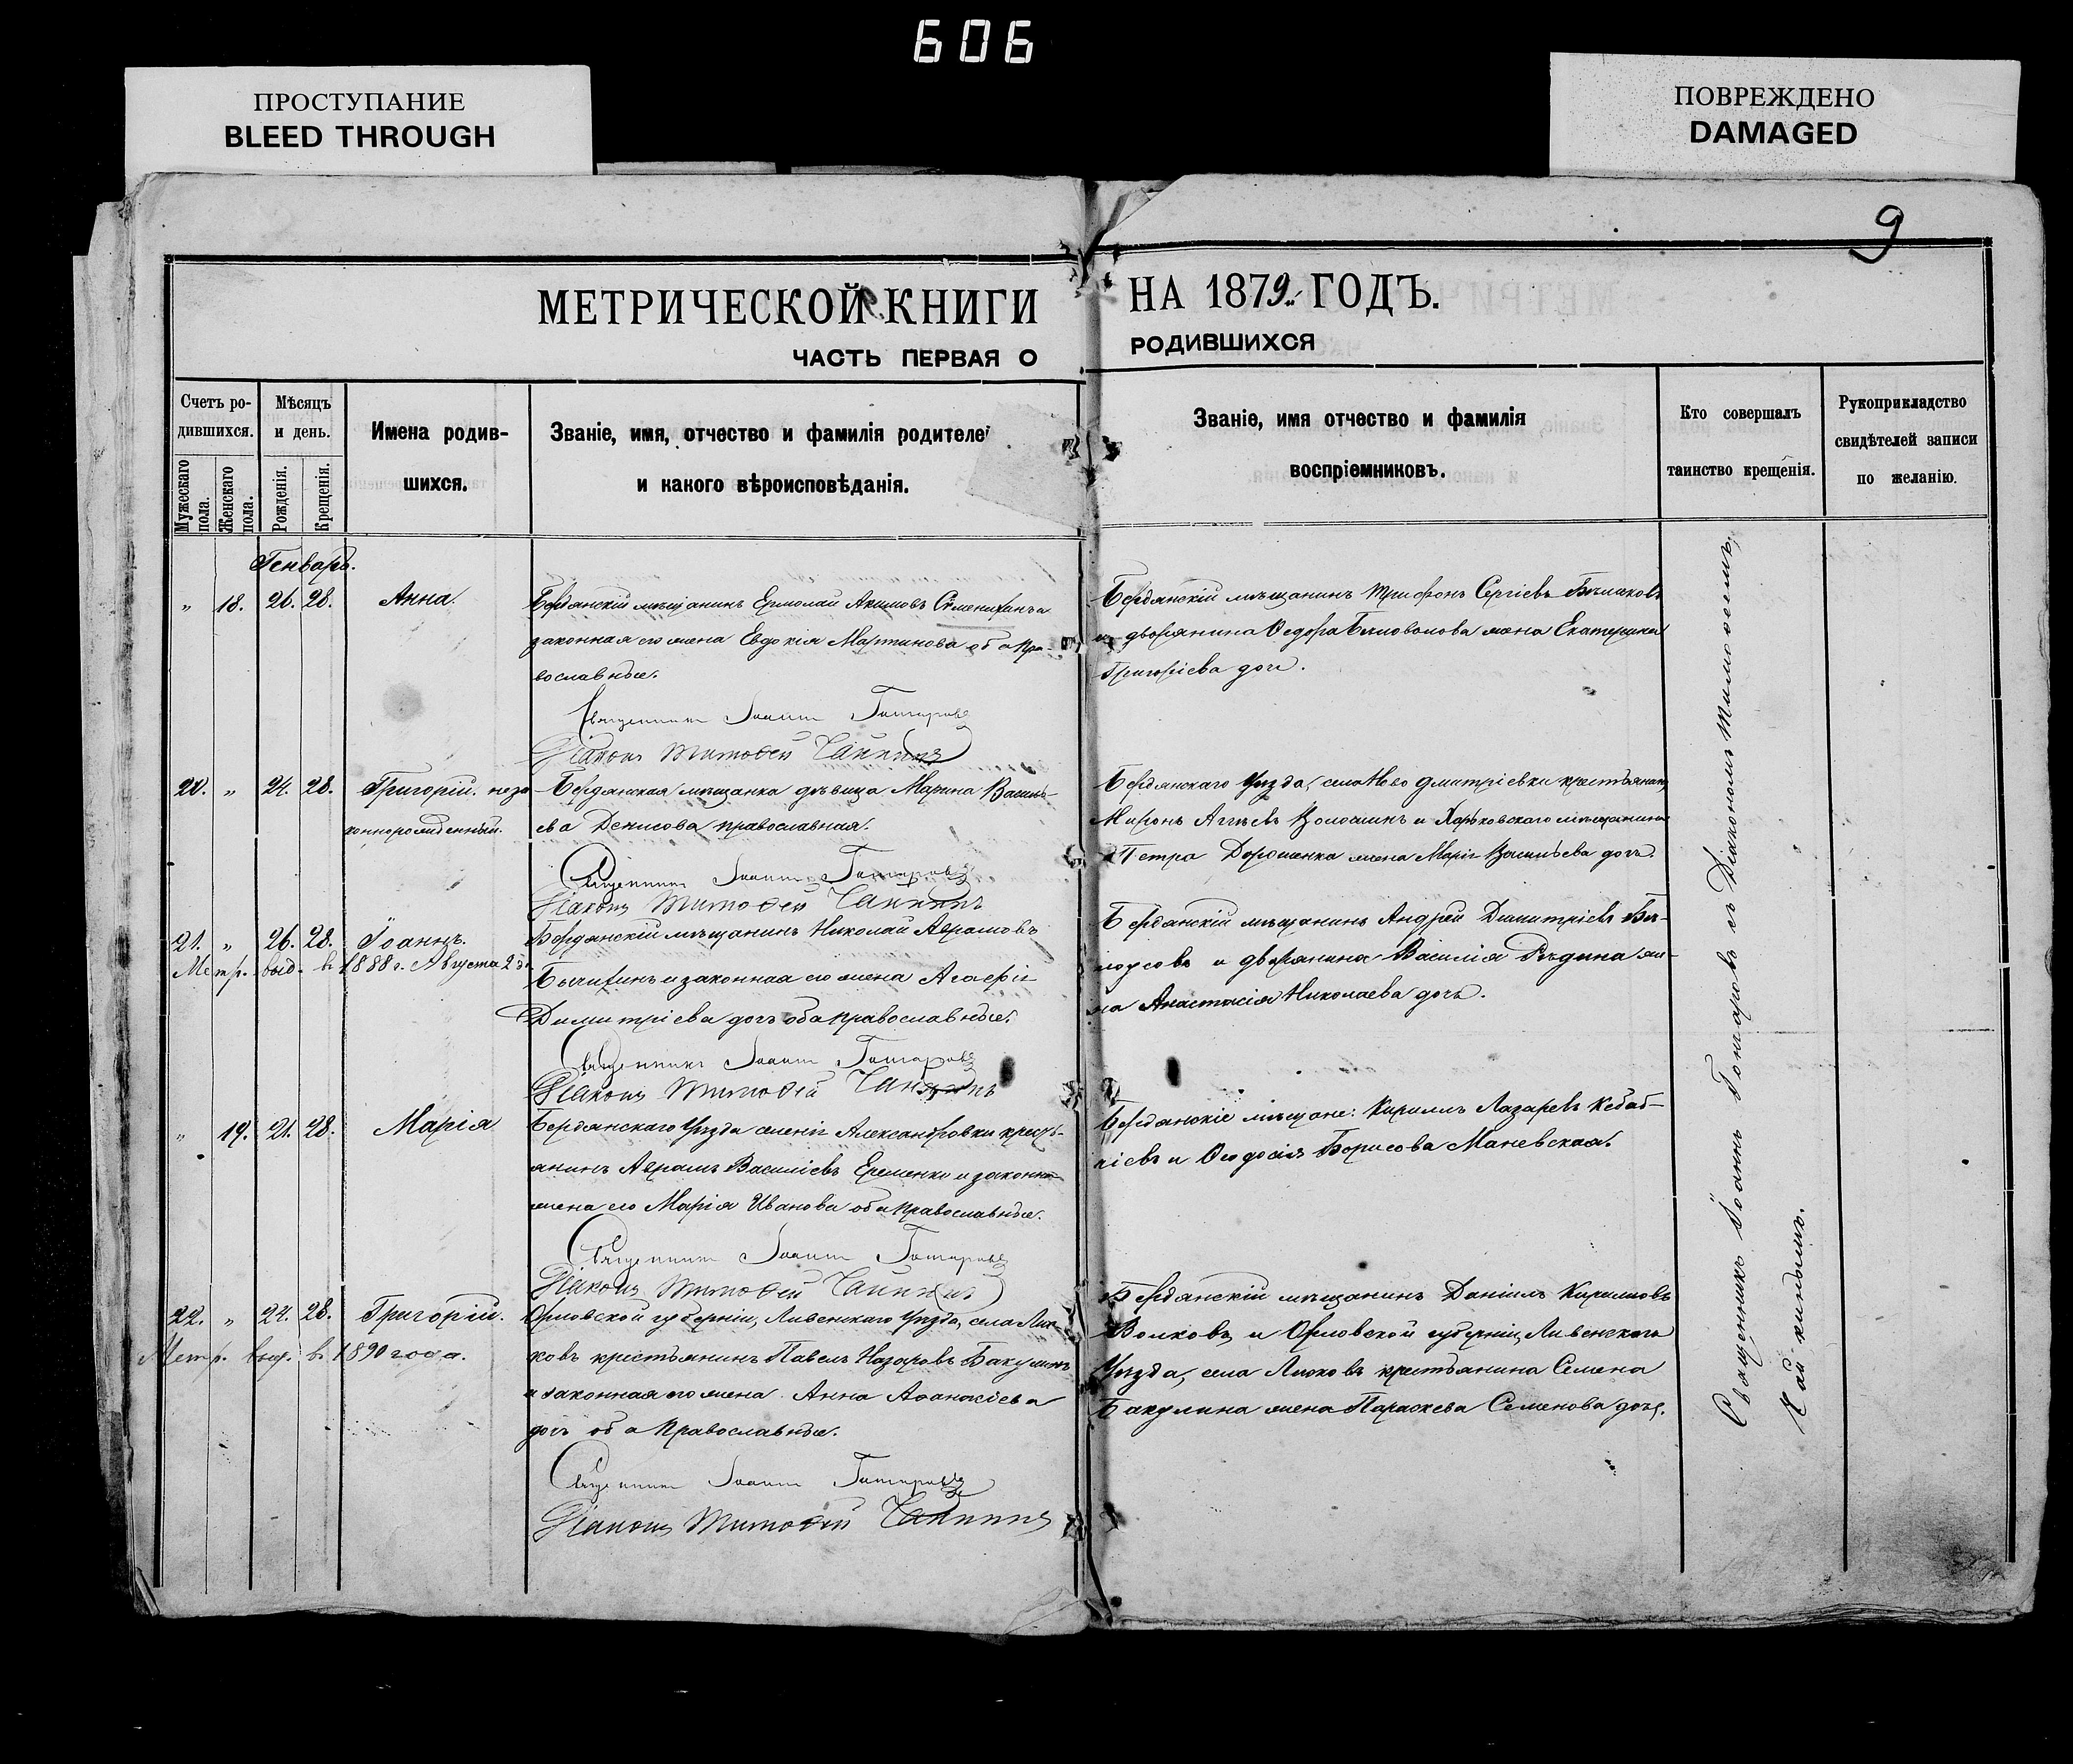 606
ПРОСТУПАНИЕ
BLEED THROUGH
ПОВРЕЖДЕНО
DAMAGED
9
МЕТРИЧЕСКОЙ КНИГИ НА 1879 ГОДЪ.
ЧАСТЬ ПЕРВАЯ О РОДИВШИХСЯ
Счетъ ро-
дившихся.
Мужескаго пола.
Женскаго пола.
Мѣсяцъ
и день.
Рожденія.
Крещенія.
Имена родив-
шихся.
Званіе, имя, отчество и фамилія родителей
и какого вѣроисповѣданія.
Званіе, имя отчество и фамилія
воспріемниковъ.
Кто совершалъ
таинство крещенія.
Рукоприкладство
свидѣтелей записи
по желанію.
Генварь.
" 18. 26. 28. Анна.
Бердянскій мѣщанинъ Ермолай Акимовъ
законная его жена Евдокія Мартинова оба пра-
вославные.
Священникъ Іоаннъ Гонтаровъ
Діаконъ Тимофей
Бердянскій мѣщанинъ Трифонъ Сергіевъ
и дворянина Федора Бѣловолова жена Екатерина
Григоріева дочь.
20. " 24. 28. Григорій. неза
коннорожденный.
Бердянская мѣщанка дѣвица Марина Василь-
ева Денисова православная.
Священникъ Іоаннъ Гонтаровъ
Діаконъ Тимофей
Бердянскаго Уѣзда, села Ново Дмитріевки крестьянинъ
Миронъ Волошинъ и Харьковскаго мѣщанина
Петра Дорошенка жена Марія Васильева дочь.
21. " 26. 28. Іоаннъ.
Метр. выд. в 1888 г. Августа 2 д.
Бердянскій мѣщанинъ Николай Аврамовъ
и законная его жена Агафія
Димитріева дочь оба православные.
Священникъ Іоаннъ Гонтаровъ
Діаконъ Тимофей
Бердянскій мѣщанинъ Андрей Димитріевъ
и дворянина Василія Рѣдина же-
на Анастасія Николаева дочь.
" 19. 21. 28. Марія
Бердянскаго Уѣзда селенія Александровки кресть-
янинъ Аврамъ Василіевъ Еременко и законная
жена его Марія Иванова оба православные.
Священникъ Іоаннъ Гонтаровъ
Діаконъ Тимофей
Бердянскіе мѣщане: Кириллъ Лазаревъ Кебаб-
чіевъ и Феодосія Борисова Маневская.
22. " 24. 28. Григорій.
Метр. выд. в 1890 года.
Орловской губерніи, Ливенскаго Уѣзда, села
крестьянинъ Павелъ Назаровъ Бакулинъ
и законная его жена Анна Афанасіева
дочь оба православные.
Священникъ Іоаннъ Гонтаровъ
Діаконъ Тимофей
Бердянскій мѣщанинъ Даніилъ Кирилловъ
Волковъ и Орловской губерніи, Ливенскаго
Уѣзда, села крестьянина Семена
Бакулина жена Параскева Семенова дочь.
Священникъ Іоаннъ Гонтаровъ съ Діакономъ Тимофеемъ